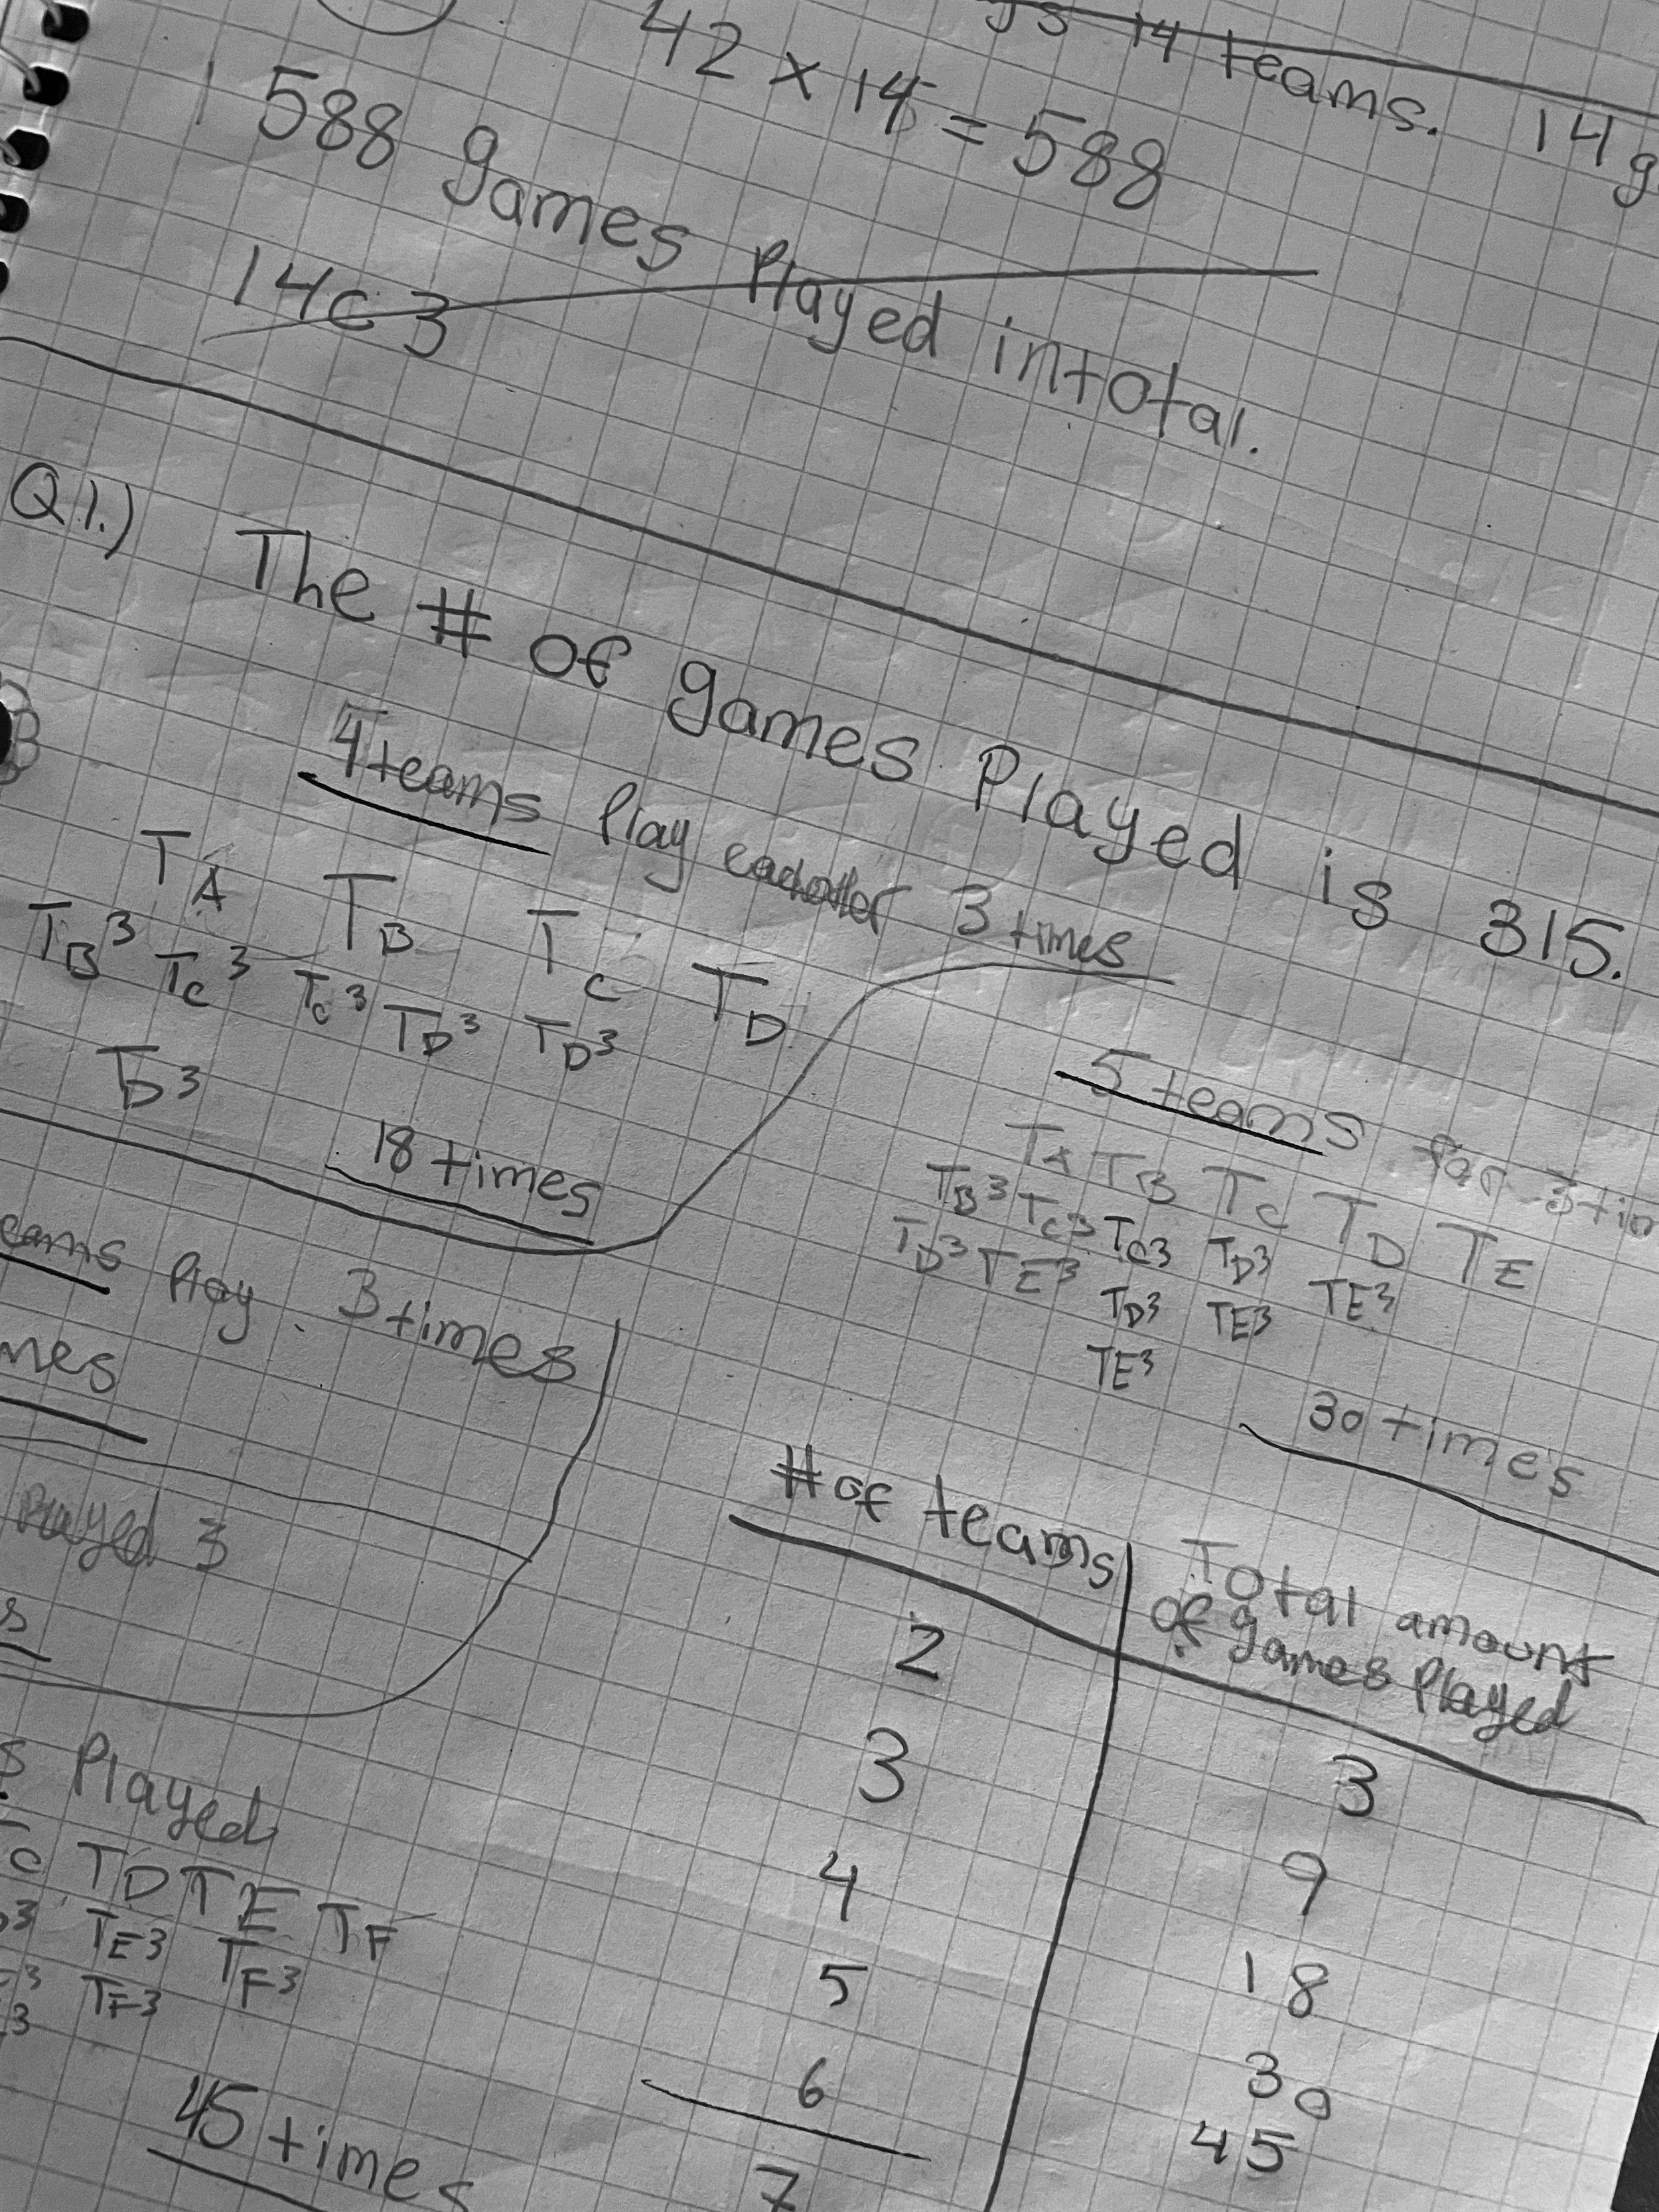 gs 14 teams. 14 g
42 × 14 = 588
588 games Played intotal.
14C3
Q1.) The # of games Played is 315.
4 teams Play eachother 3 times
TA TB TC TD
TB3 TC3 TC3 TD3 TD3
TD3
18 times
5 teams for 3 tim
TA TB TC TD TE
TB3 TC3 TC3 TD3 TE3
TD3 TE3 TD3 TE3
TE3
30 times
eams Play 3 times
mes
Played 3
s
s Played
C TD TE TF
D3 TE3 TF3
E3 TF3
3
45 times
# of teams Total amount
of games Played
2 3
3 9
4 18
5 30
6 45
7